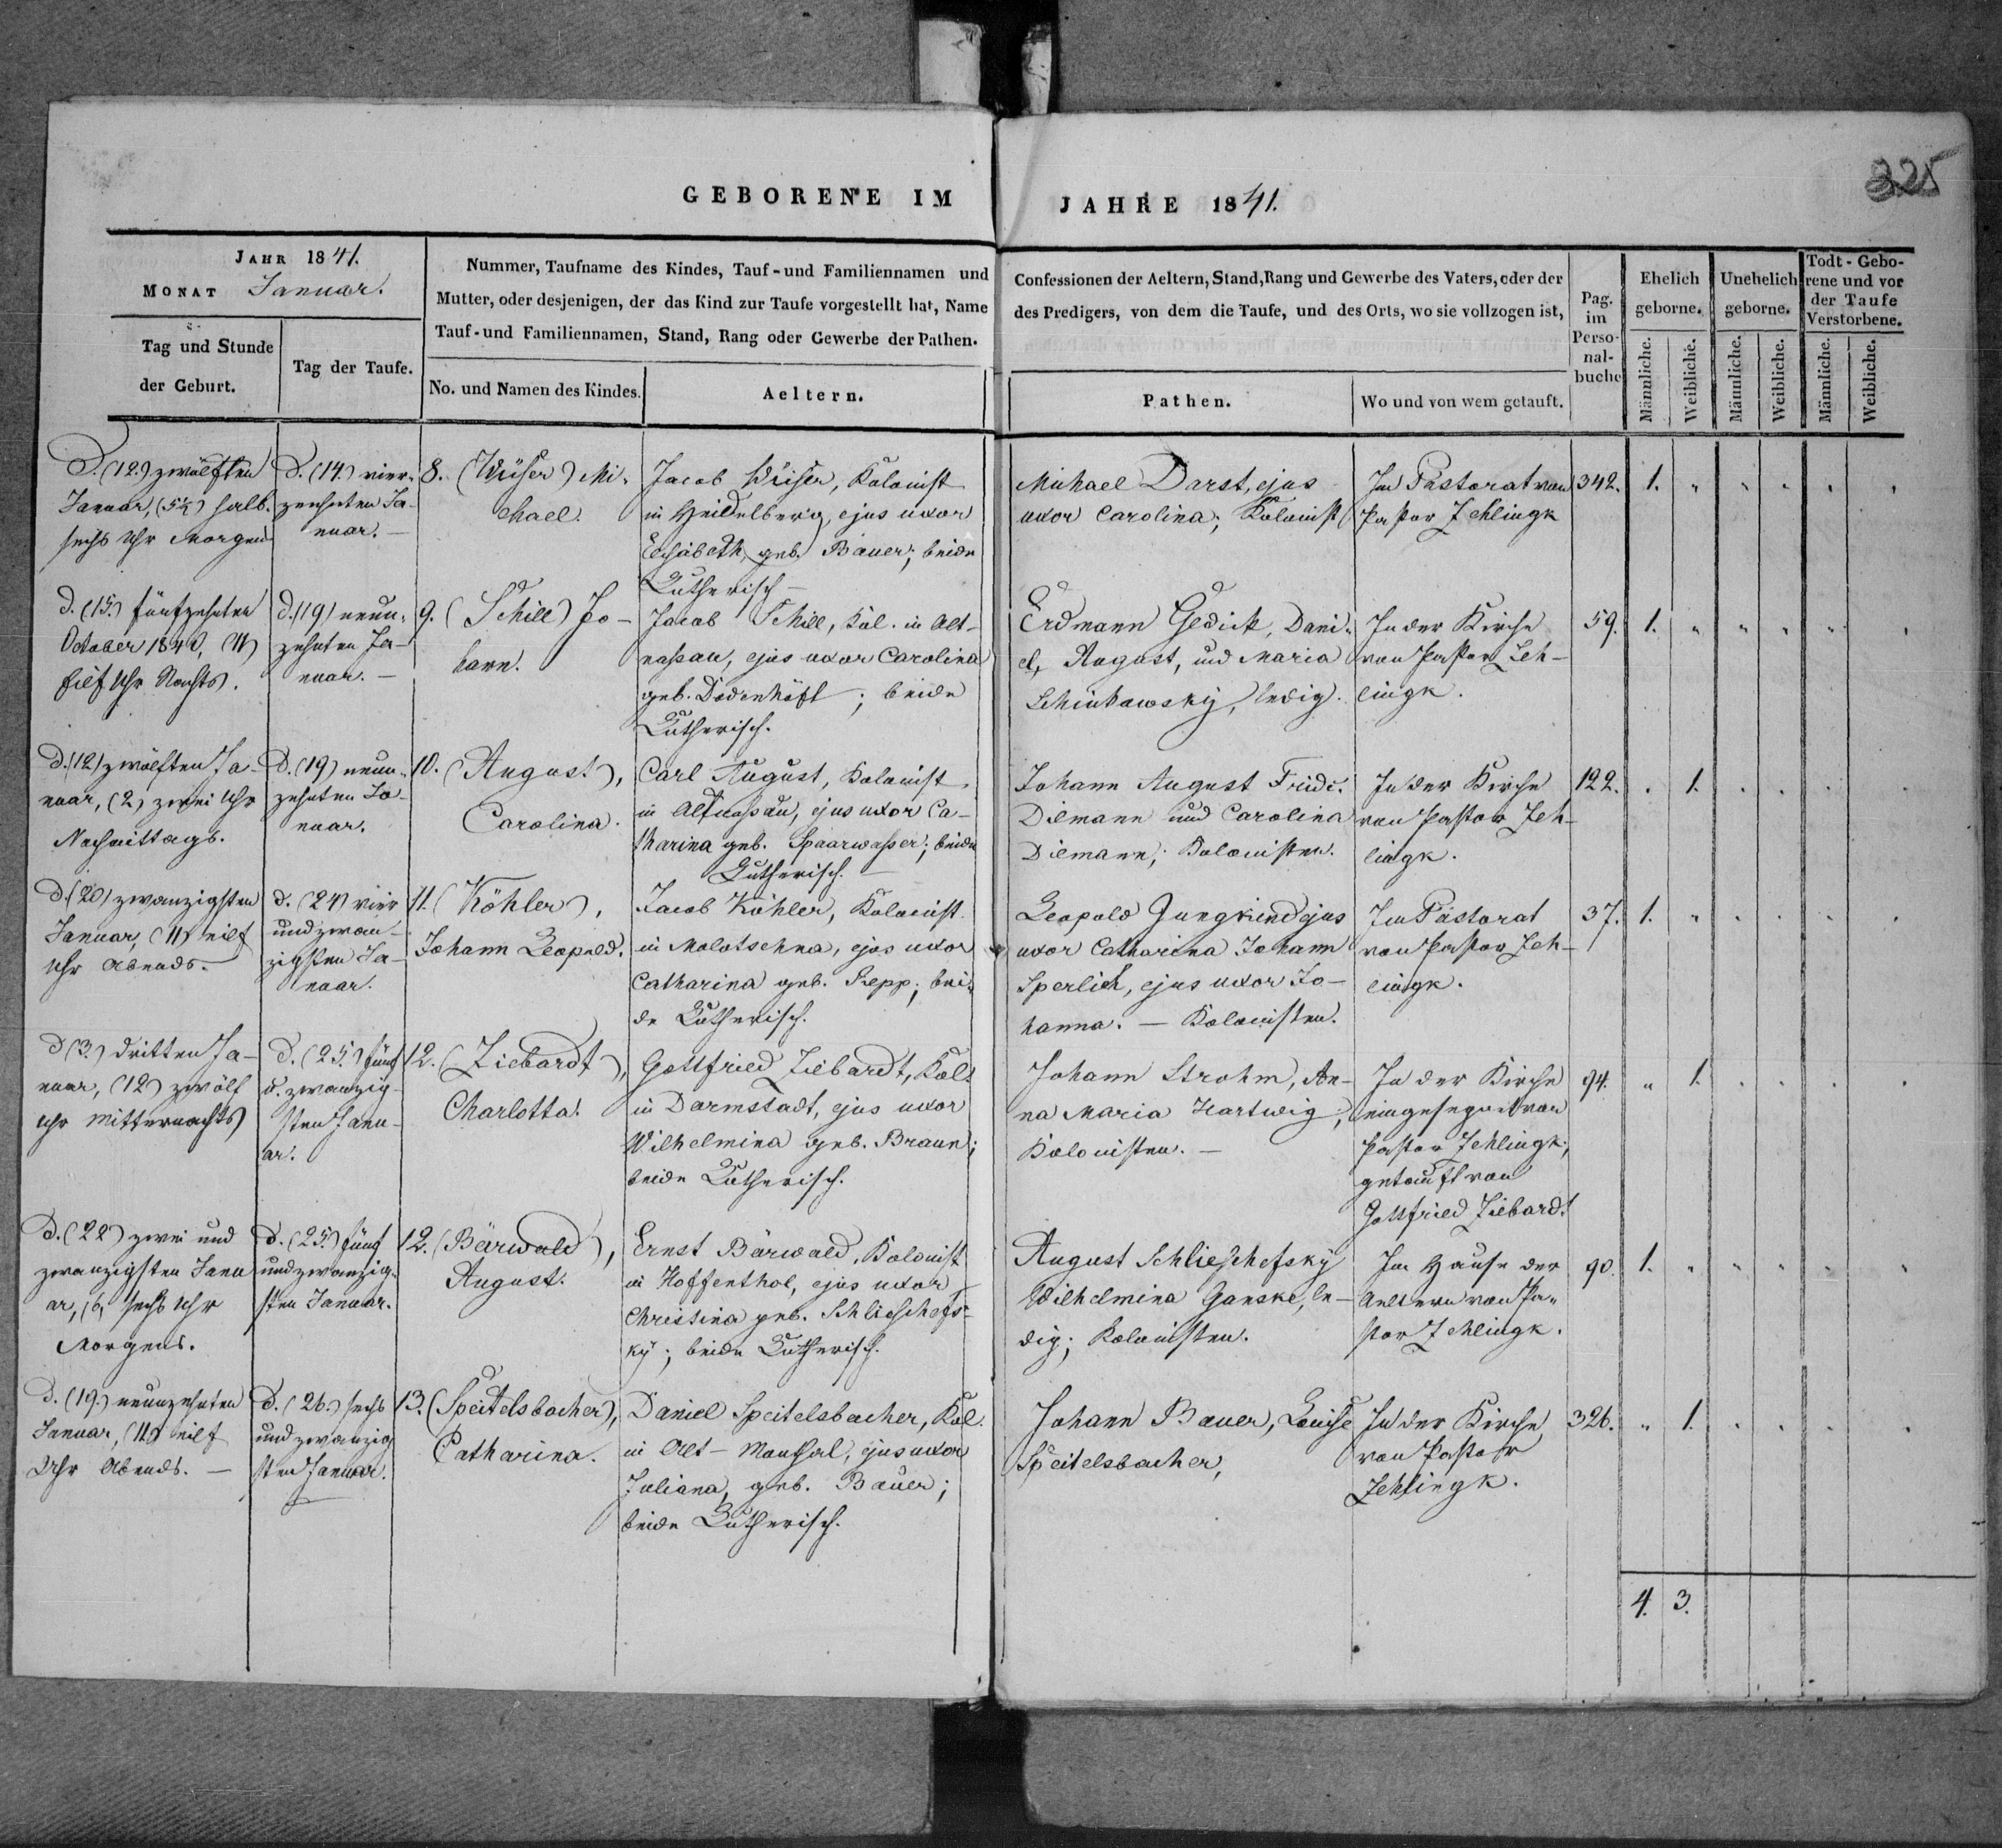 325
GEBORENE IM JAHRE 1841.
JAHR 1841.
MONAT Januar.
Tag und Stunde
der Geburt.
Tag der Taufe.
Nummer, Taufname des Kindes, Tauf- und Familiennamen und
Mutter, oder desjenigen, der das Kind zur Taufe vorgestellt hat, Name
Tauf- und Familiennamen, Stand, Rang oder Gewerbe der Pathen.
No. und Namen des Kindes.
Aeltern.
Confessionen der Aeltern, Stand, Rang und Gewerbe des Vaters, oder der
des Predigers, von dem die Taufe, und des Orts, wo sie vollzogen ist,
Pathen.
Wo und von wem getauft.
Pag.
im
Perso-
nal-
buche
Ehelich
geborne.
Unehelich
geborne.
Todt-Gebo-
rene und vor
der Taufe
Verstorbene.
Männliche.
Weibliche.
Männliche.
Weibliche.
Männliche.
Weibliche.
D. (12.) zwölften
Januar, (5½) halb
sechs Uhr Morgens
D. (14.) vier-
zehnten Ja-
nuar. —
8. (Wüser) Mi-
chael.
Jacob Wüser, Kolonist
in Heidelberg, ejus uxor
Elisabeth, geb. Bauer; beide
Lutherisch —
Michael Darst, ejus
uxor Carolina; Kolonist
Im Pastorat von
Pastor Zehlingk
342. 1. " " " " "
d. (15.) fünfzehnten
October 1840, (11)
eilf Uhr Nachts.
d. (19) neun-
zehnten Ja-
nuar. —
9. (Schill) Jo-
hann.
Jacob Schill, Kol. in Alt-
nassau, ejus uxor Carolina
geb. Dodenhöft; beide
Lutherisch.
Erdmann Gedick, Dani-
el, August, und Maria
Schinkawsky, ledig.
In der Kirche
von Pastor Zeh-
lingk.
59. 1. " " " " "
d. (12) zwölften Ja-
nuar, (2) zwei Uhr
Nachmittags.
D. (19) neun-
zehnten Ja-
nuar.
10. (August),
Carolina.
Carl August, Kolonist
in Altnassau, ejus uxor Ca-
tharina geb. Spaarwasser; beide
Lutherisch. —
Johann August Fridr.
Diemann und Carolina
Diemann; Kolonisten.
In der Kirche
von Pastor Zeh-
lingk.
122. " 1. " " " "
d. (20) zwanzigsten
Januar, (11) eilf
Uhr Abends.
d. (24) vier
und zwan-
zigsten Ja-
nuar.
11. (Köhler),
Johann Leopold.
Jacob Köhler, Kolonist
in Molotschna, ejus uxor
Catharina geb. Repp; bei-
de Lutherisch.
Leopold Jungkind ejus
uxor Catharina Johann
Sperlich, ejus uxor Jo-
hanna. — Kolonisten.
Im Pastorat
von Pastor Zeh-
lingk.
37. 1. " " " " "
d (3.) dritten Ja-
nuar, (12) zwölf
Uhr Mitternachts
d. (25.) fünf
u. zwanzig-
sten Janu-
ar.
12. (Ziebardt),
Charlotta.
Gottfried Ziebardt, Kol.
in Darmstadt, ejus uxor
Wilhelmina geb. Braun;
beide Lutherisch.
Johann Strohm, An-
na Maria Hartwig,
Kolonisten. —
In der Kirche
eingesegnet von
Pastor Zehlingk;
getauft von
Gottfried Ziebardt
94. " 1. " " " "
D. (22) zwei und
zwanzigsten Janu
ar, (6, sechs Uhr
Morgens.
D. (25) fünf
und zwanzig-
sten Januar.
12. (Bärwald),
August.
Ernst Bärwald, Kolonist
in Hoffenthol, ejus uxor
Christina geb. Schlieschefs-
ky; beide Lutherisch.
August Schlieschefsky
Wilhelmina Ganske, le-
dig; Kolonisten.
Im Hause der
Aeltern von Pa-
stor Zehlingk.
90. 1. " " " " "
d. (19.) neunzehnten
Januar, (11) eilf
Uhr Abends. —
d. (26.) sechs
und zwanzig
sten Januar.
13. (Speitelsbacher),
Catharina.
Daniel Speitelsbacher, Kol.
in Alt-Monthal, ejus uxor
Juliana, geb. Bauer;
beide Lutherisch.
Johann Bauer, Louise
Speitelsbacher,
In der Kirche
von Pastor
Zehlingk.
326. " 1. " " " "
4. 3.